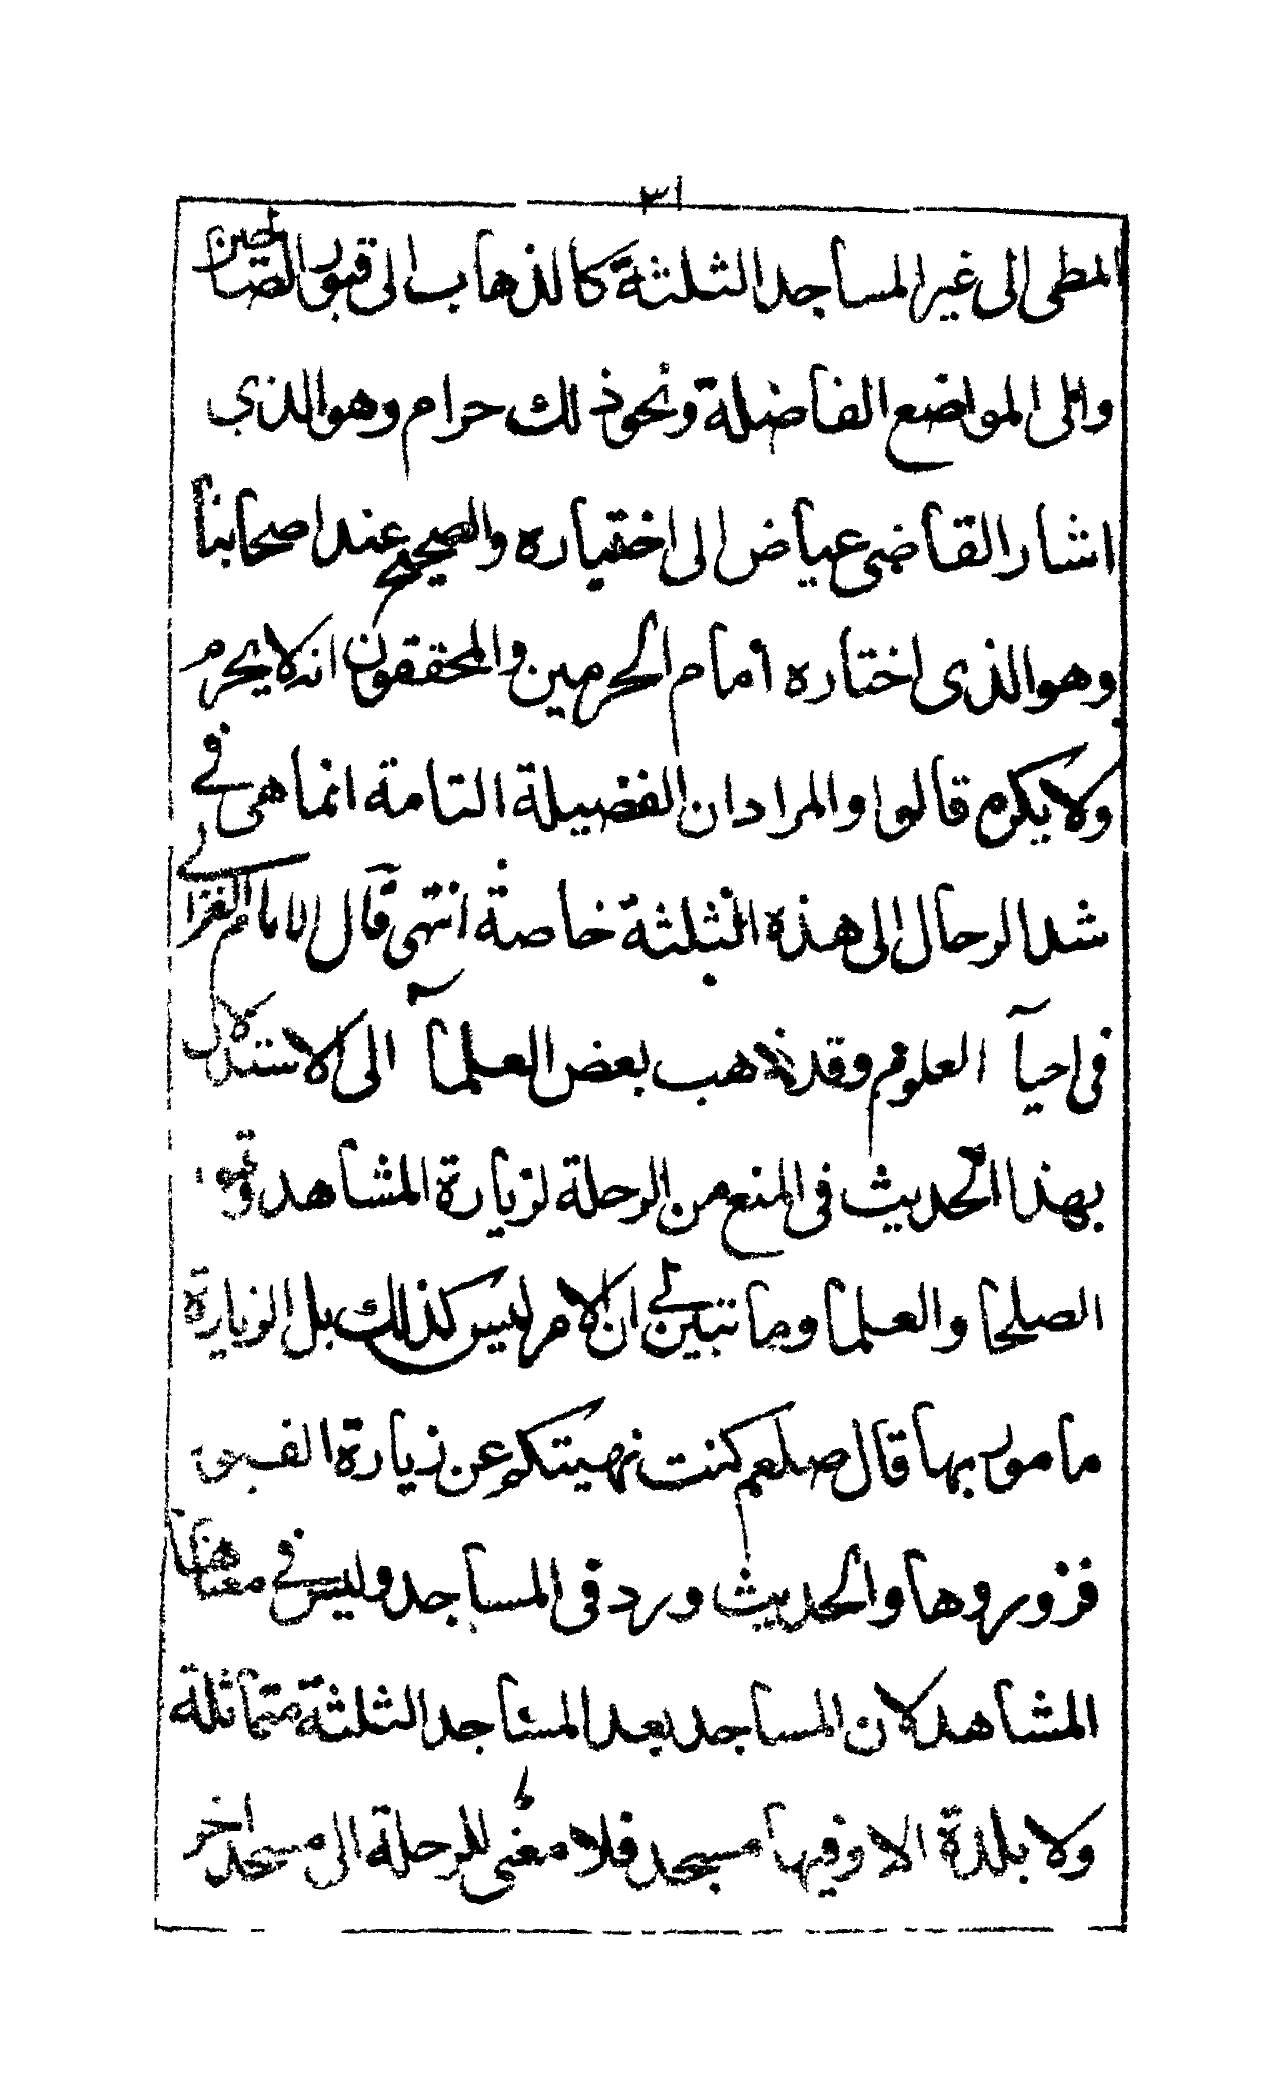 ٣١
المطى الى غير المساجد الثلثة كالذهاب الى قبور الصالحين
والى المواضع الفاضلة ونحو ذلك حرام وهو الذي
اشار القاضى عياض الى اختياره والصحيح عند اصحابنا
وهو الذى اختاره امام الحرمين والمحققون انه لا يحرم
ولا يكره قالوا والمراد ان الفضيلة التامة انما هى فى
شد الرحال الى هذه الثلثة خاصة انتهى قال الامام الغزالى
فى احيآ العلوم وقد ذهب بعض العلمآ الى الاستدلال
بهذا الحديث فى المنع من الرحلة لزيارة المشاهد وقبور
الصلحا والعلما وما تبين لى ان الامر ليس كذلك بل الزيارة
مامور بها قال صلعم كنت نهيتكم عن زيارة القبور
فزوروها والحديث ورد فى المساجد وليس فى معناها
المشاهد لان المساجد بعد المساجد الثلثة متماثلة
ولا بلدة الا وفيها مسجد فلا معنى للرحلة الى مسجد اخر